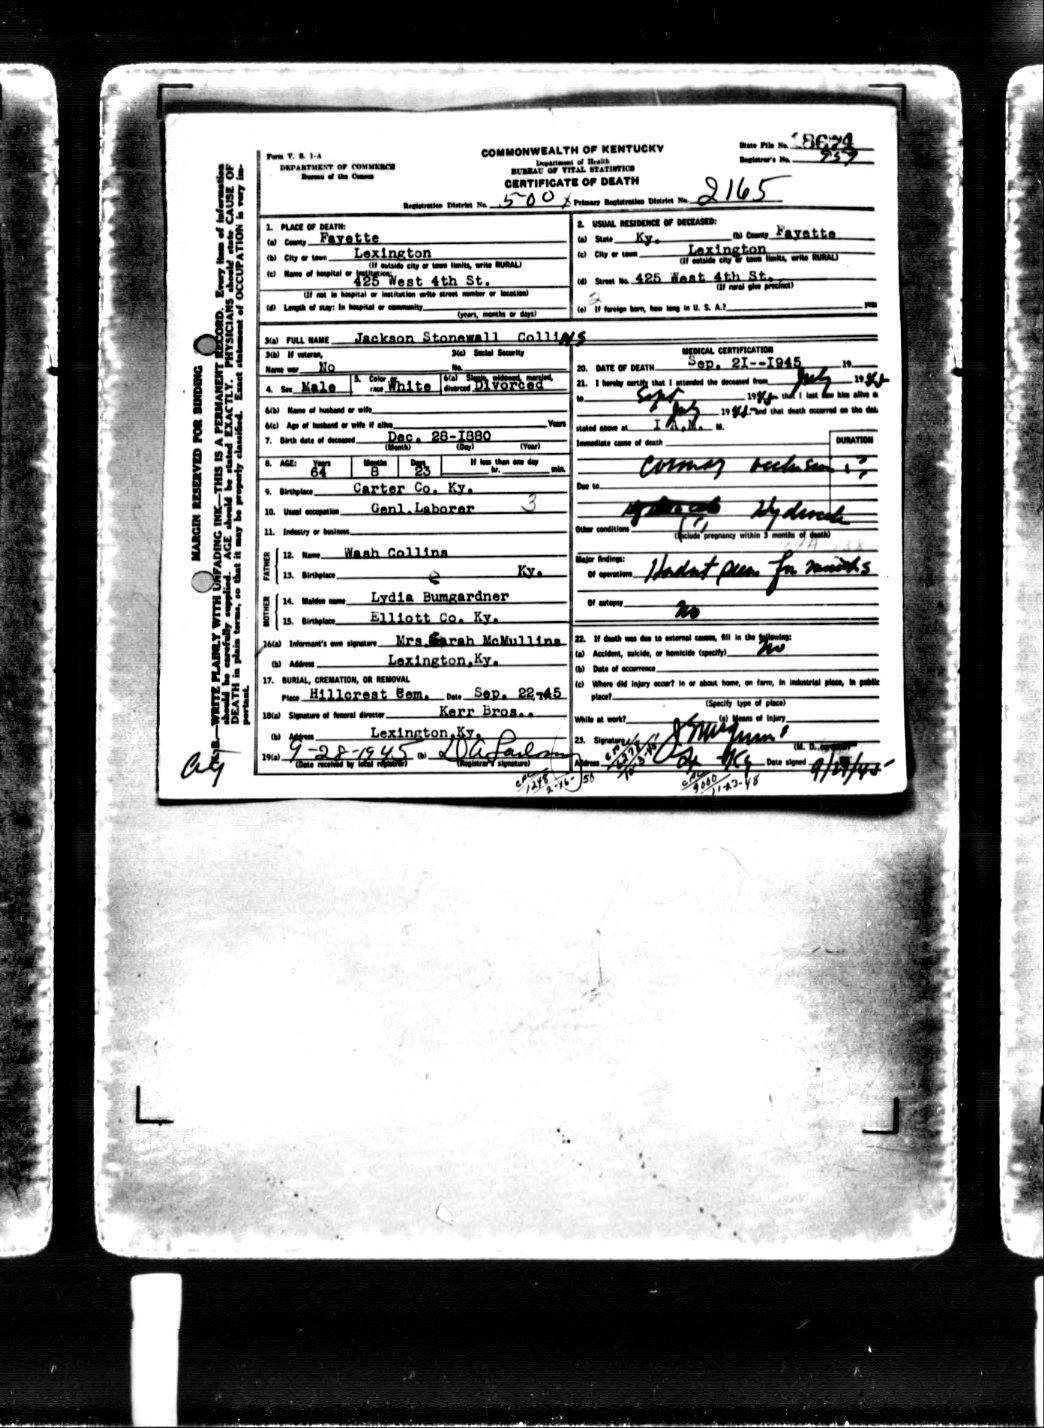 Form V. S. 1-A
DEPARTMENT OF COMMERCE
Bureau of the Census
COMMONWEALTH OF KENTUCKY
Department of Health
BUREAU OF VITAL STATISTICS
CERTIFICATE OF DEATH
State File No.
Registrar's No.
Registration District No. 500 Primary Registration District No. 2165
MARGIN RESERVED FOR BINDING
N.B.—WRITE PLAINLY WITH UNFADING INK—THIS IS A PERMANENT RECORD. Every item of information
should be carefully supplied. AGE should be stated EXACTLY. PHYSICIANS should state CAUSE OF
DEATH in plain terms, so that it may be properly classified. Exact statement of OCCUPATION is very im-
portant.
1. PLACE OF DEATH:
(a) County Fayette
(b) City or town Lexington
(If outside city or town limits, write RURAL)
(c) Name of hospital or institution:
425 West 4th St.
(If not in hospital or institution write street number or location)
(d) Length of stay: In hospital or community
(years, months or days)
2. USUAL RESIDENCE OF DECEASED:
(a) State Ky. (b) County Fayette
(c) City or town Lexington
(If outside city or town limits, write RURAL)
(d) Street No. 425 West 4th St.
(If rural give precinct)
(e) If foreign born, how long in U. S. A.? years
3(a) FULL NAME Jackson Stonewall Collins
3(b) If veteran,
Name war No
3(c) Social Security
No.
4. Sex Male
5. Color or
race White
6(a) Single, widowed, married,
divorced Divorced
6(b) Name of husband or wife
6(c) Age of husband or wife if alive Years
7. Birth date of deceased Dec. 28-1880
(Month) (Day) (Year)
8. AGE: Years Months Days If less than one day
64 8 23 hr. min.
9. Birthplace Carter Co. Ky.
10. Usual occupation Genl.Laborer 3
11. Industry or business
FATHER
12. Name Wash Collins
13. Birthplace Ky.
MOTHER
14. Maiden name Lydia Bumgardner
15. Birthplace Elliott Co. Ky.
16(a) Informant's own signature Mrs. Sarah McMullins
(b) Address Lexington,Ky.
17. BURIAL, CREMATION, OR REMOVAL
Place Hillcrest Cem. Date Sep. 22-45
18(a) Signature of funeral director Kerr Bros..
(b) Address Lexington,Ky.
19(a) 9-28-1945 (b)
(Date received by local registrar) (Registrar's signature)
MEDICAL CERTIFICATION
20. DATE OF DEATH Sep. 2I--I945 19
21. I hereby certify that I attended the deceased from July 1945
to Sept 1945 that I last saw him alive on
July 1945 and that death occurred on the date
stated above at I A.M. M.
Immediate cause of death DURATION
Coronary occlusion
Due to
Hydrocele
Other conditions
(Include pregnancy within 3 months of death)
Major findings:
Of operations Hadnt seen for months
Of autopsy No
22. If death was due to external causes, fill in the following:
(a) Accident, suicide, or homicide (specify) No
(b) Date of occurrence
(c) Where did injury occur? In or about home, on farm, in industrial place, in public
place?
(Specify type of place)
While at work? (e) Means of injury
23. Signature
(M. D.,
Address Lex Ky Date signed
City